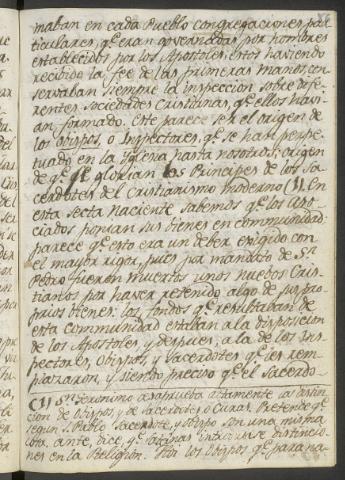 maban en cada Pueblo congregaciones par
ticulares, qᵉ eran governadas por hombres
establecidos por los Apostoles; estos haviendo
recibido la fee de las primeras manos, con
servaban siempre la inspeccion sobre dife
rentes Sociedades Cristianas, qᵉ ellos havi
an formado. Este parece ser el origen de
los Obispos, o Inspectores, qᵉ se han perpe
tuado en la Yglesia hasta nosotros; origen
de qᵉ se glorian los Principes de los Sa
cerdotes del Cristianismo moderno (1). En
esta Secta naciente sabemos qᵉ los aso
ciados ponian sus bienes en comunidad:
parece qᵉ esto era un deber exigido con
el mayor rigor, pues por mandato de Sⁿ
Pedro fueron muertos unos nuebos Cris
tianos por haver retenido algo de sus pro
prios bienes: los fondos qᵉ resultaban de
esta comunidad estaban a la disposicion
de los Apostoles y despues, a la de los Ins
pectores, Obispos, y Sacerdotes qᵉ les rem
plazaron, y siendo preciso qᵉ el Sacerdo-
(1) Sⁿ Geronimo desaprueba altamente la distin
cion de Obispos y de Sacerdotes o Curas. Pretende qᵉ
segun S. Pablo Sacerdote, y obispo son una misma
cosa, ante, dice, qᵉ Satanas introdu distincio
nes en la Religion. Por los Obispos qᵉ para na-